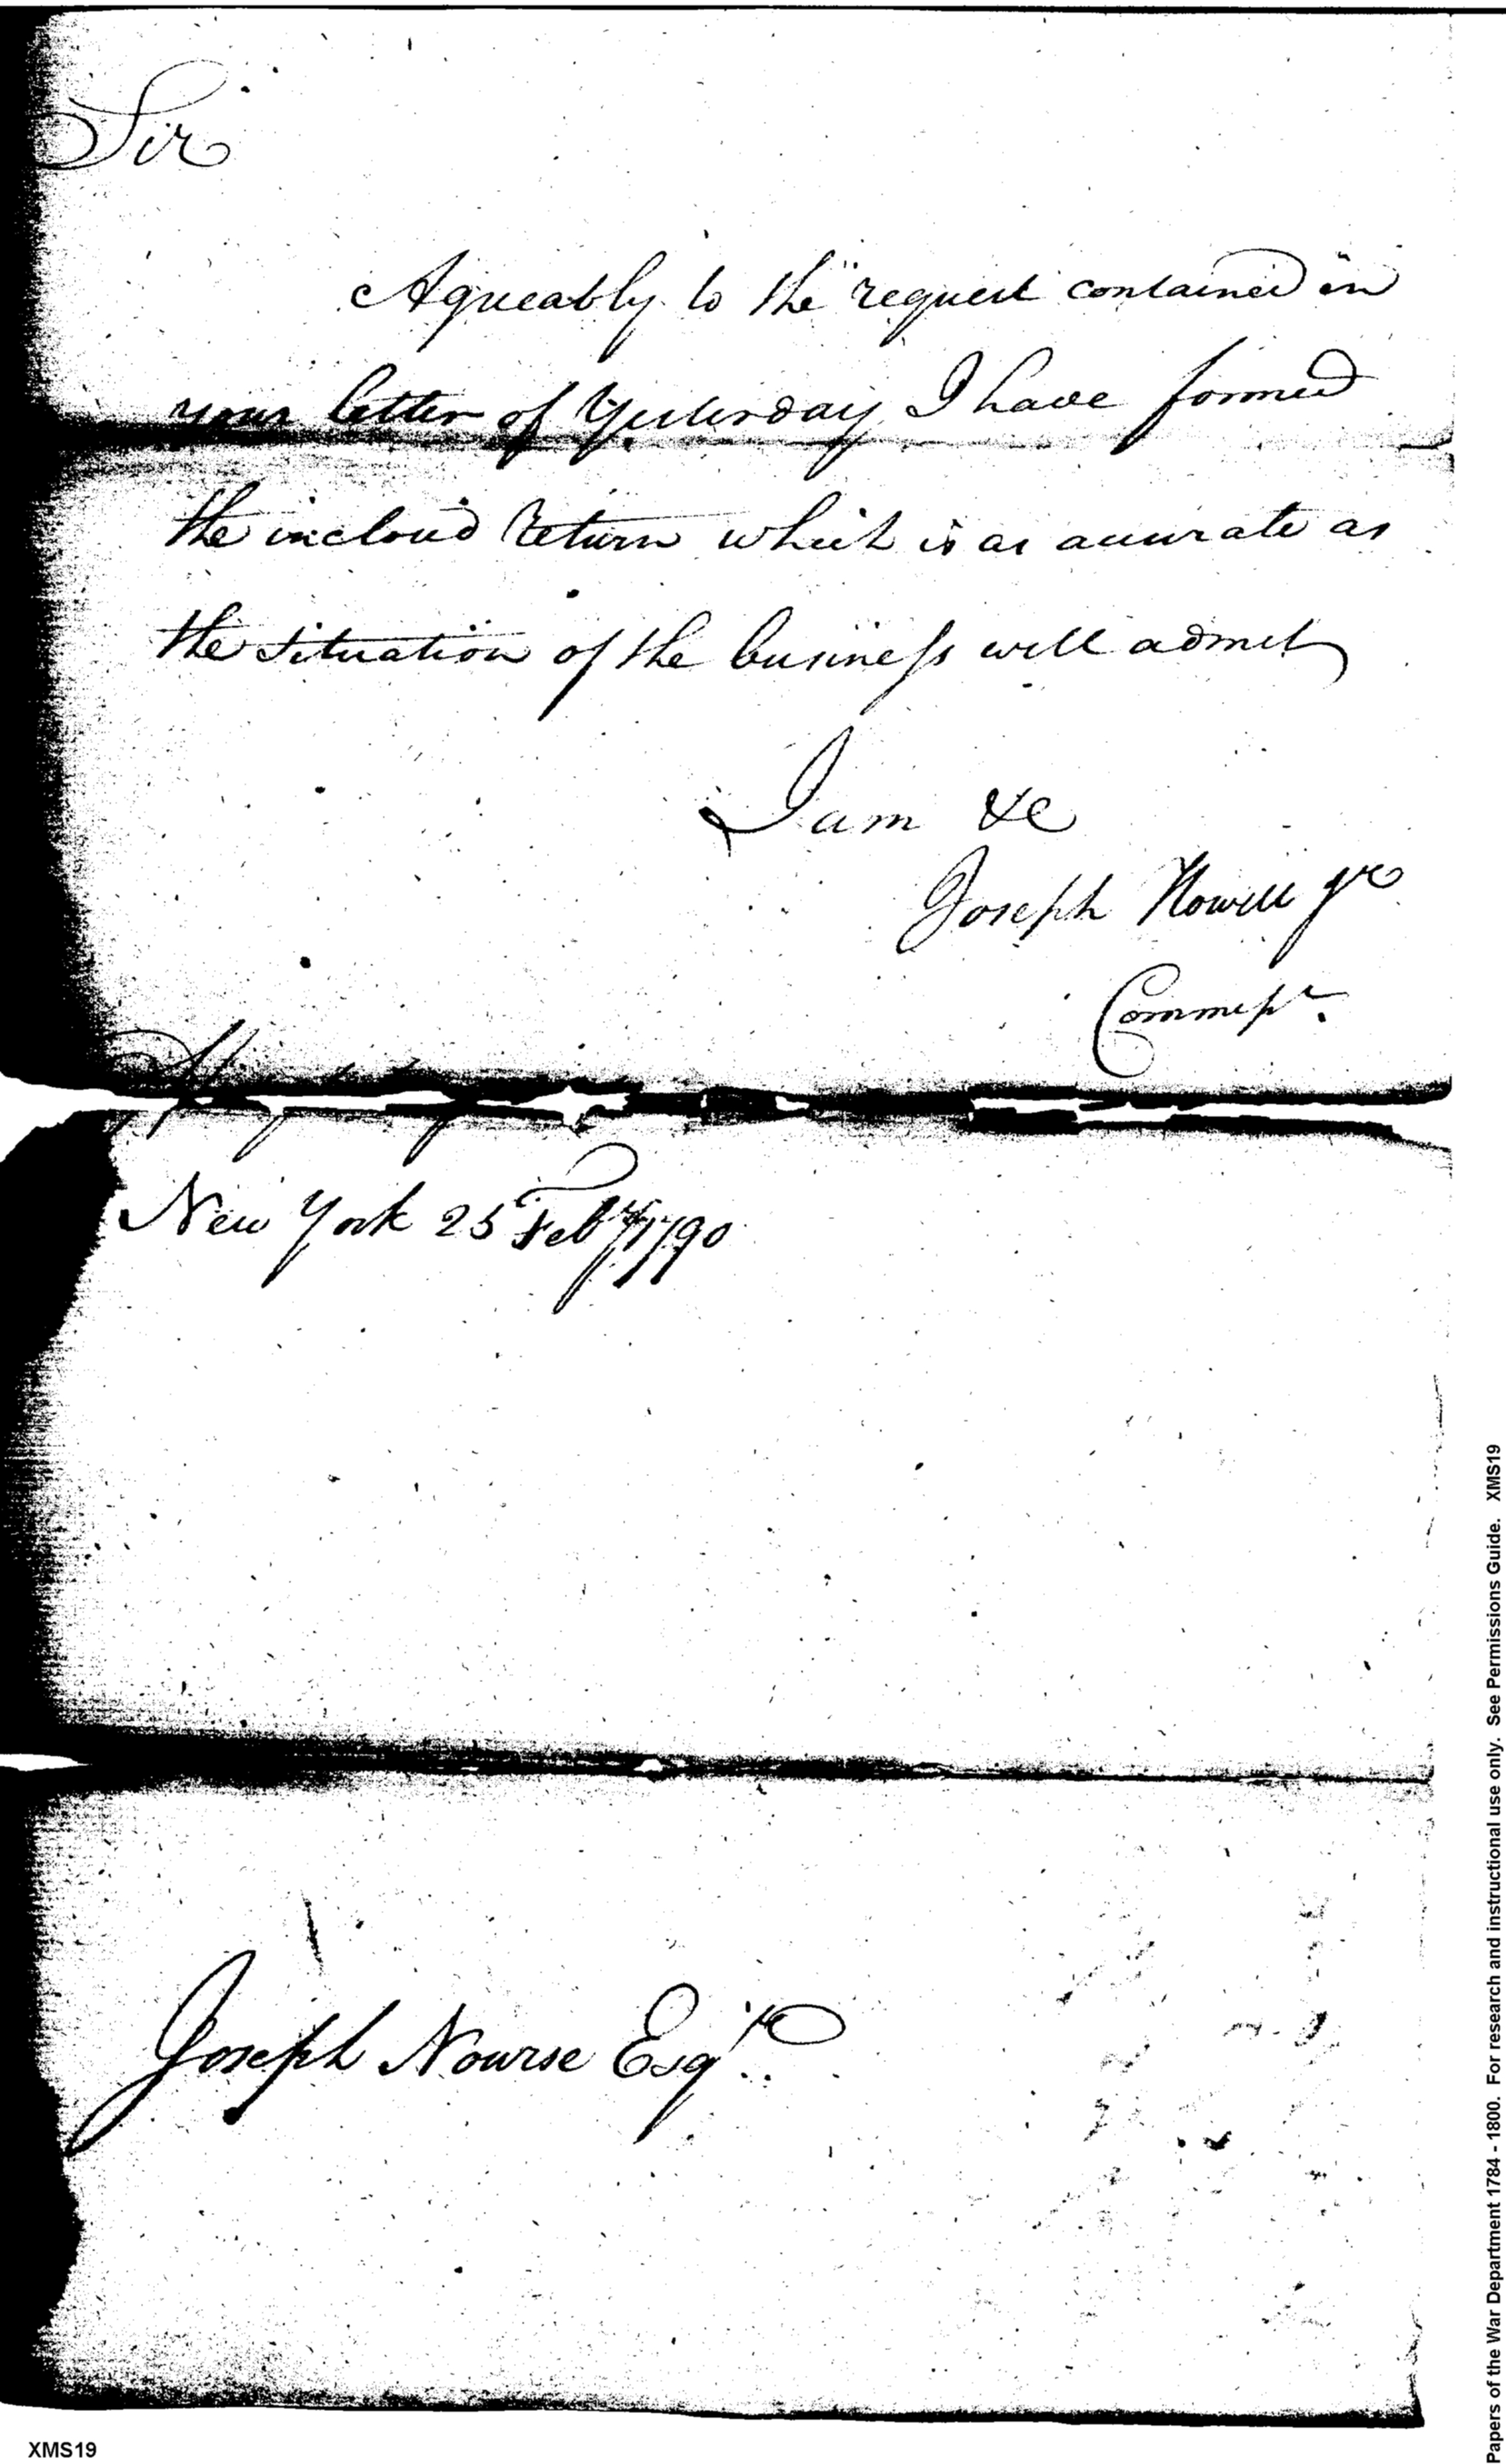 Sir
Agreably to the request contained in
your letter of Yesterday I have formed
the inclosed return which is as accurate as
the situation of the business will admit
I am &c
Joseph Howell Jr
Commissr.
New York 25 Feby 1790
Joseph Nourse Esqr.
XMS19
Papers of the War Department 1784 - 1800. For research and instructional use only. See Permissions Guide. XMS19